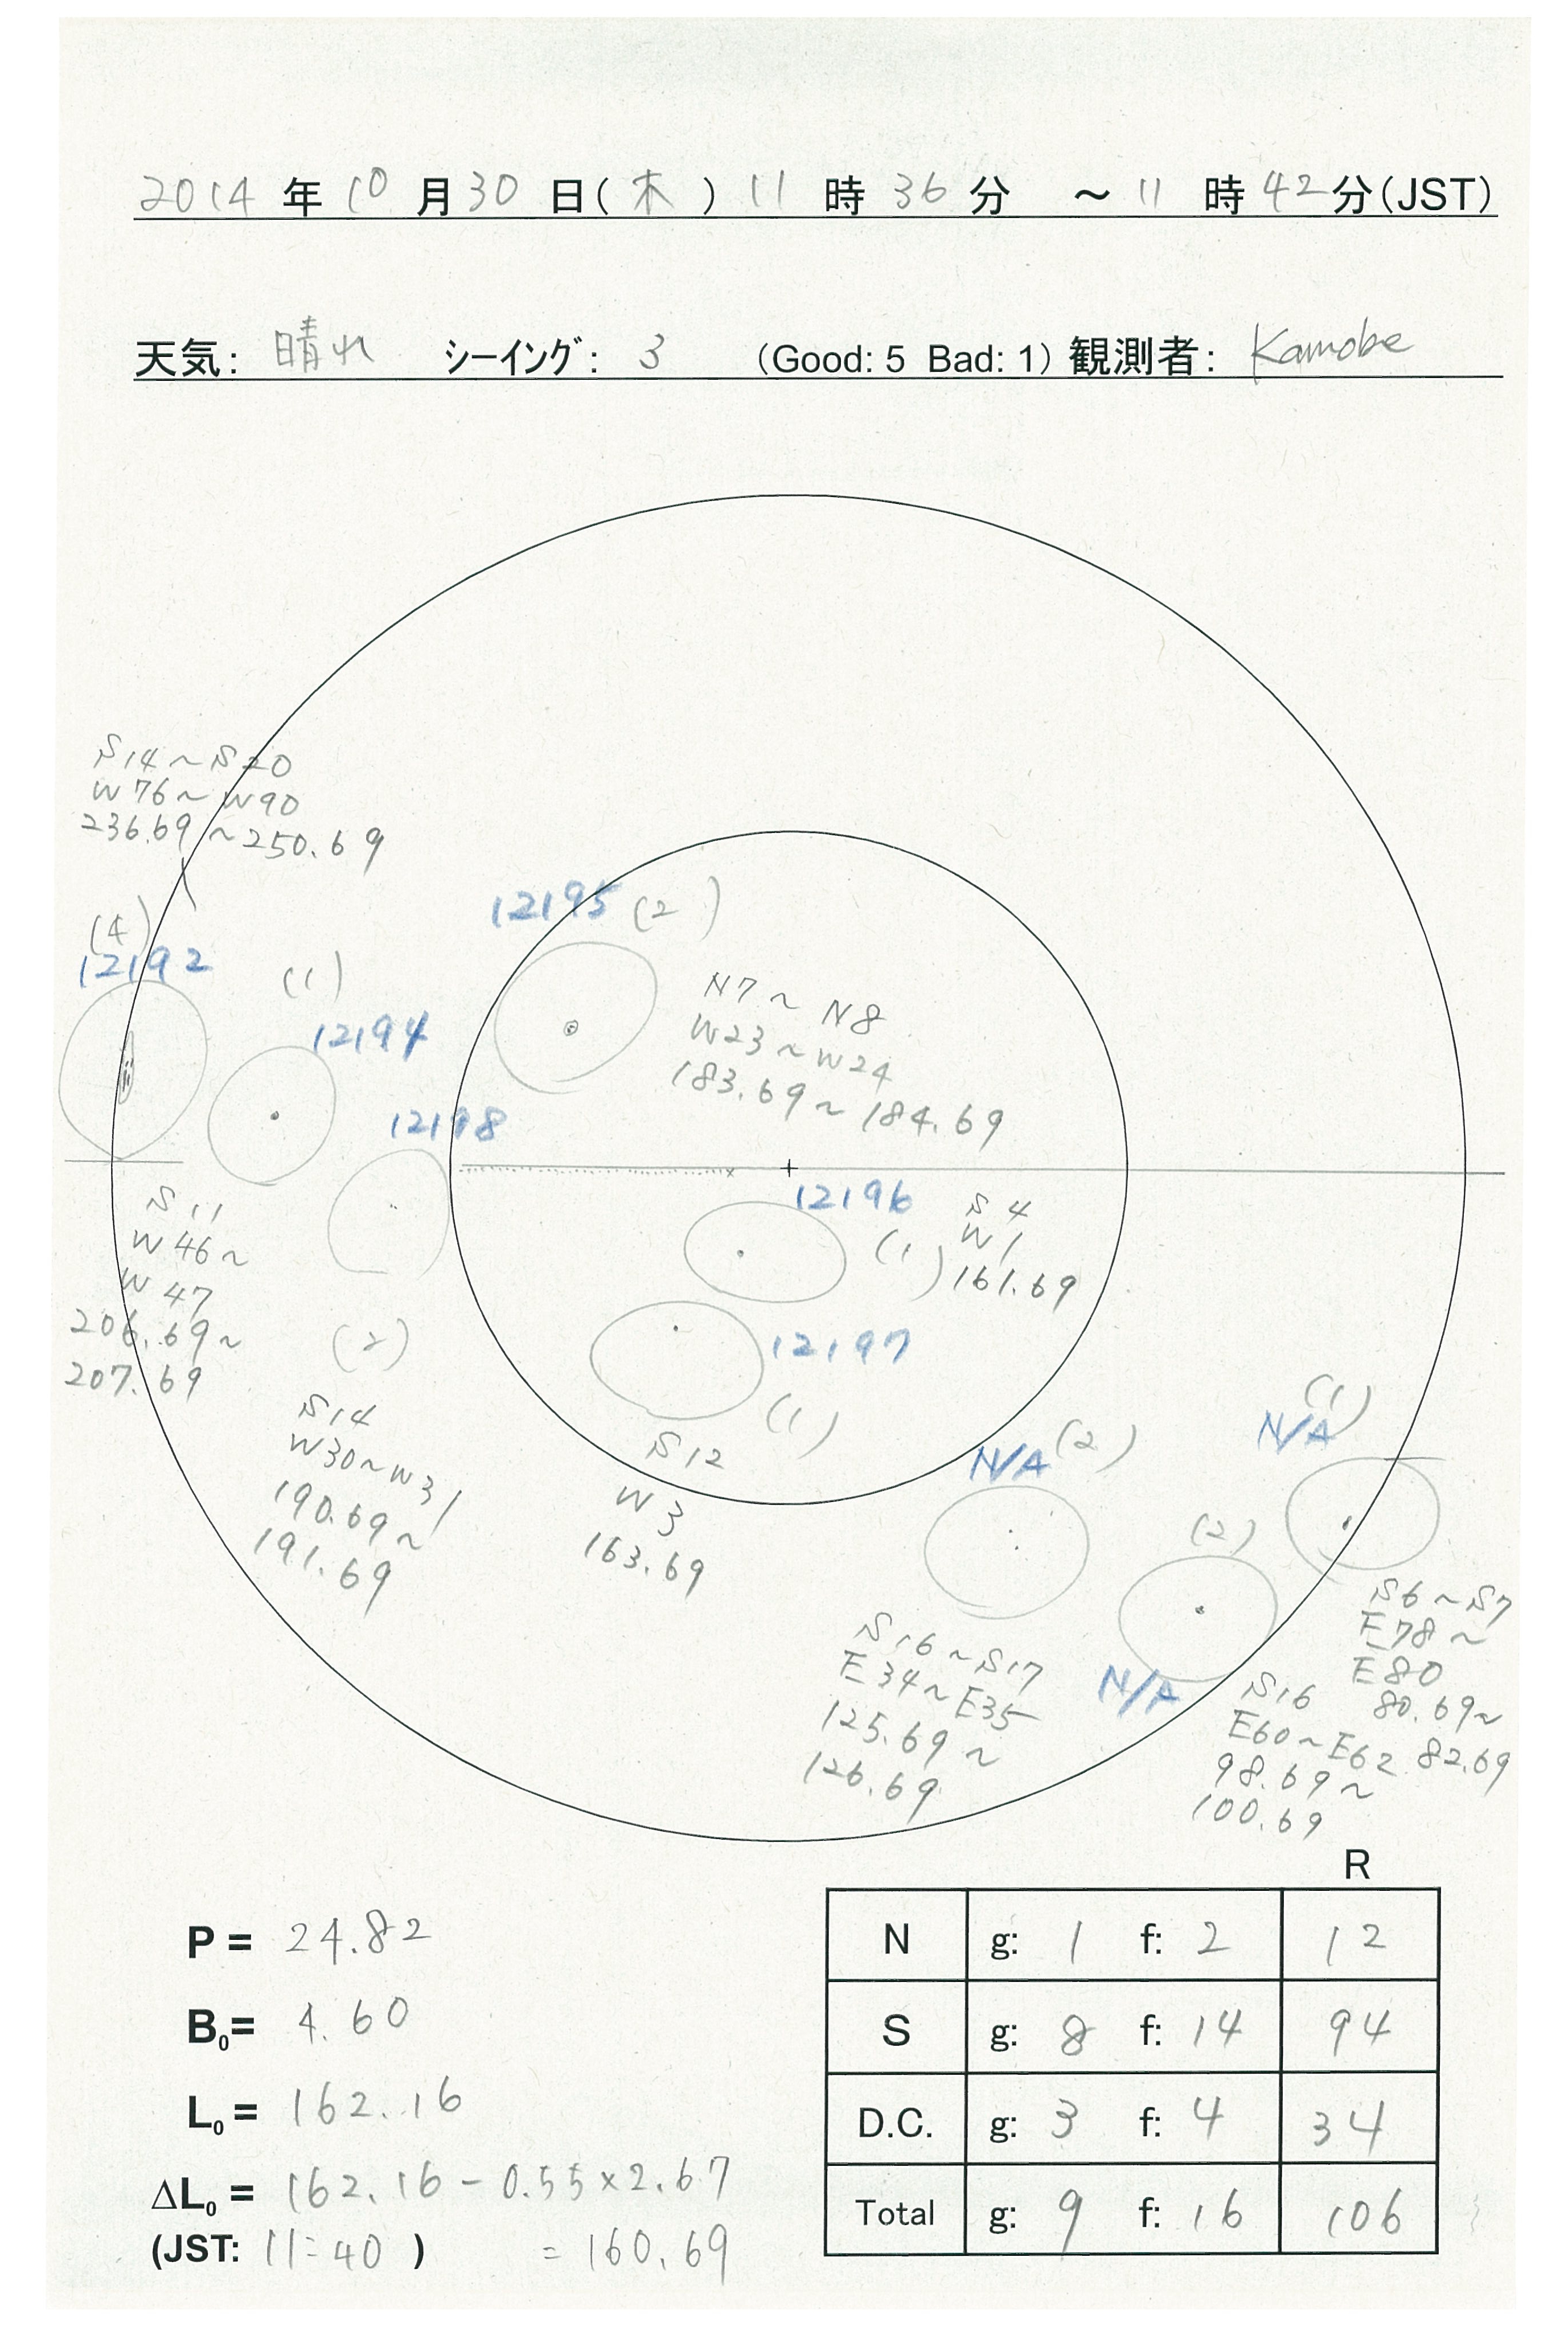 2014年10月30日(木)11時36分 ～11時42分(JST)
天気: 晴れ シーイング: 3 (Good: 5 Bad: 1) 観測者: Kamobe
S14～S20
W76～W90
236.69～250.69
(4)
12192
(1)
12194
12195 (2)
N7～N8
W23～W24
183.69～184.69
12198
S11
W46～
W47
206.69～
207.69
(2)
S14
W30～W31
190.69～
191.69
12196
(1)
S4
W1
161.69
12197
(1)
S12
W3
163.69
N/A (2)
S16～S17
E34～E35
125.69～
126.69
(2)
N/A
S16
E60～E62
98.69～
100.69
(1)
N/A
S6～S7
E78～
E80
80.69～
82.69
P = 24.82
B0= 4.60
L0= 162.16
ΔL0= 162.16-0.55×2.67
(JST: 11:40 ) = 160.69
R
N g: 1 f: 2 12
S g: 8 f: 14 94
D.C. g: 3 f: 4 34
Total g: 9 f: 16 106